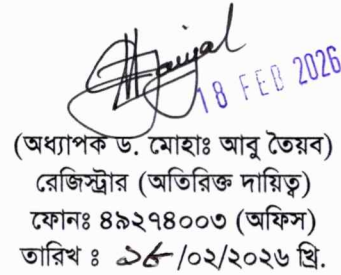 18 FEB 2026
(অধ্যাপক ড. মোহাঃ আবু তৈয়ব)
রেজিস্ট্রার (অতিরিক্ত দায়িত্ব)
ফোনঃ ৪৯২৭৪০০৩ (অফিস)
তারিখ ঃ ১৮/০২/২০২৬ খ্রি.